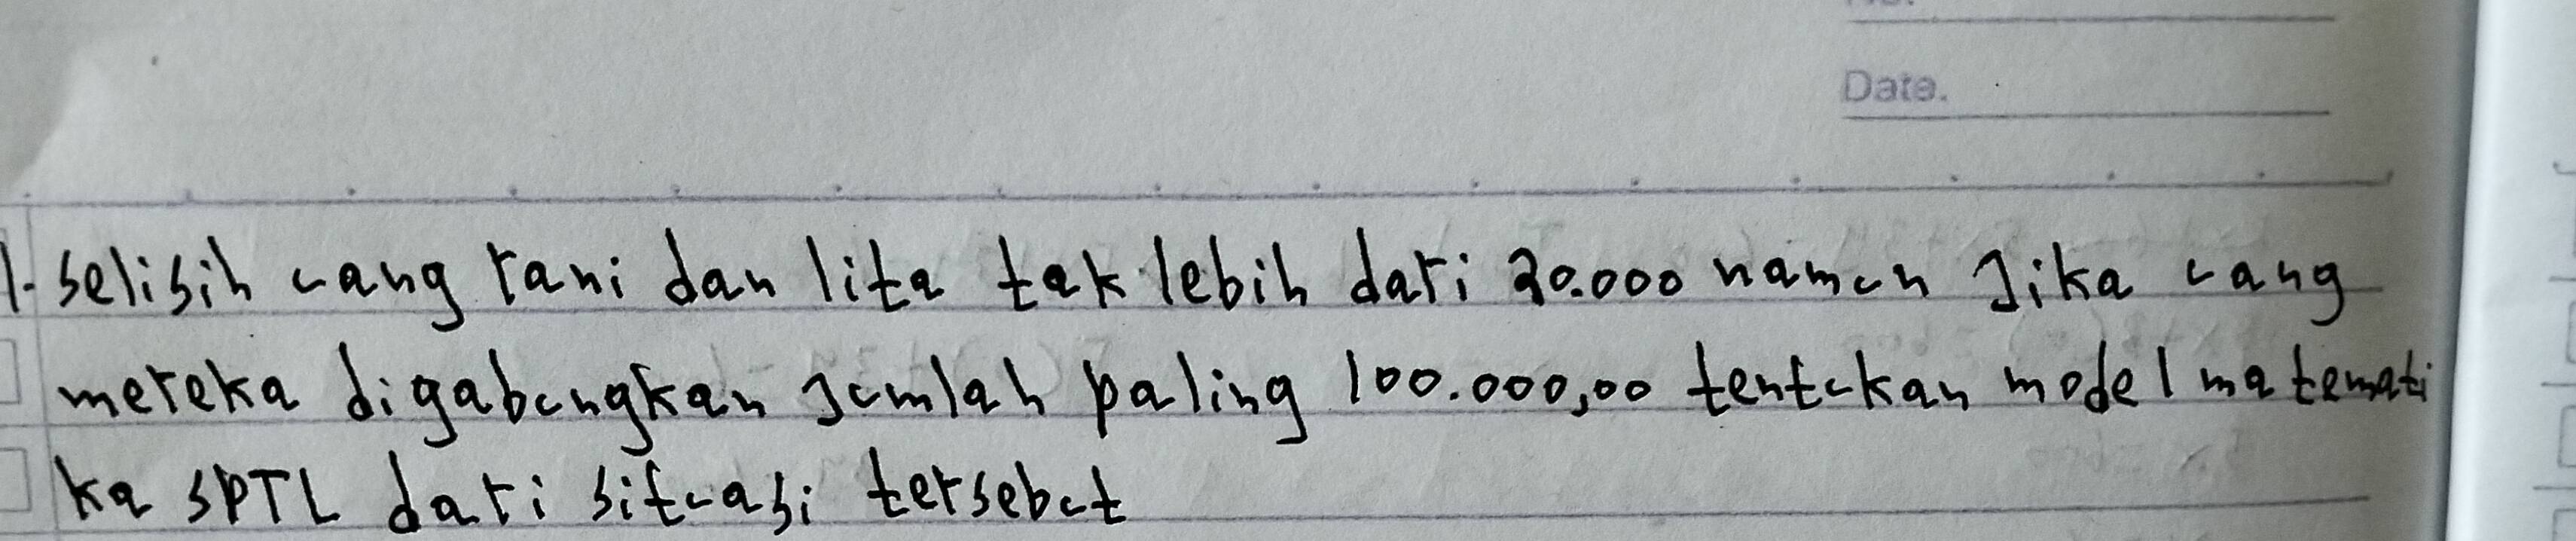 Date.
1. selisih uang rani dan lita tak lebih dari 20.000 namun Jika uang
mereka digabungkan Jumlah paling 100.000,00 tentukan model matemati
ka SPTL dari situasi tersebut